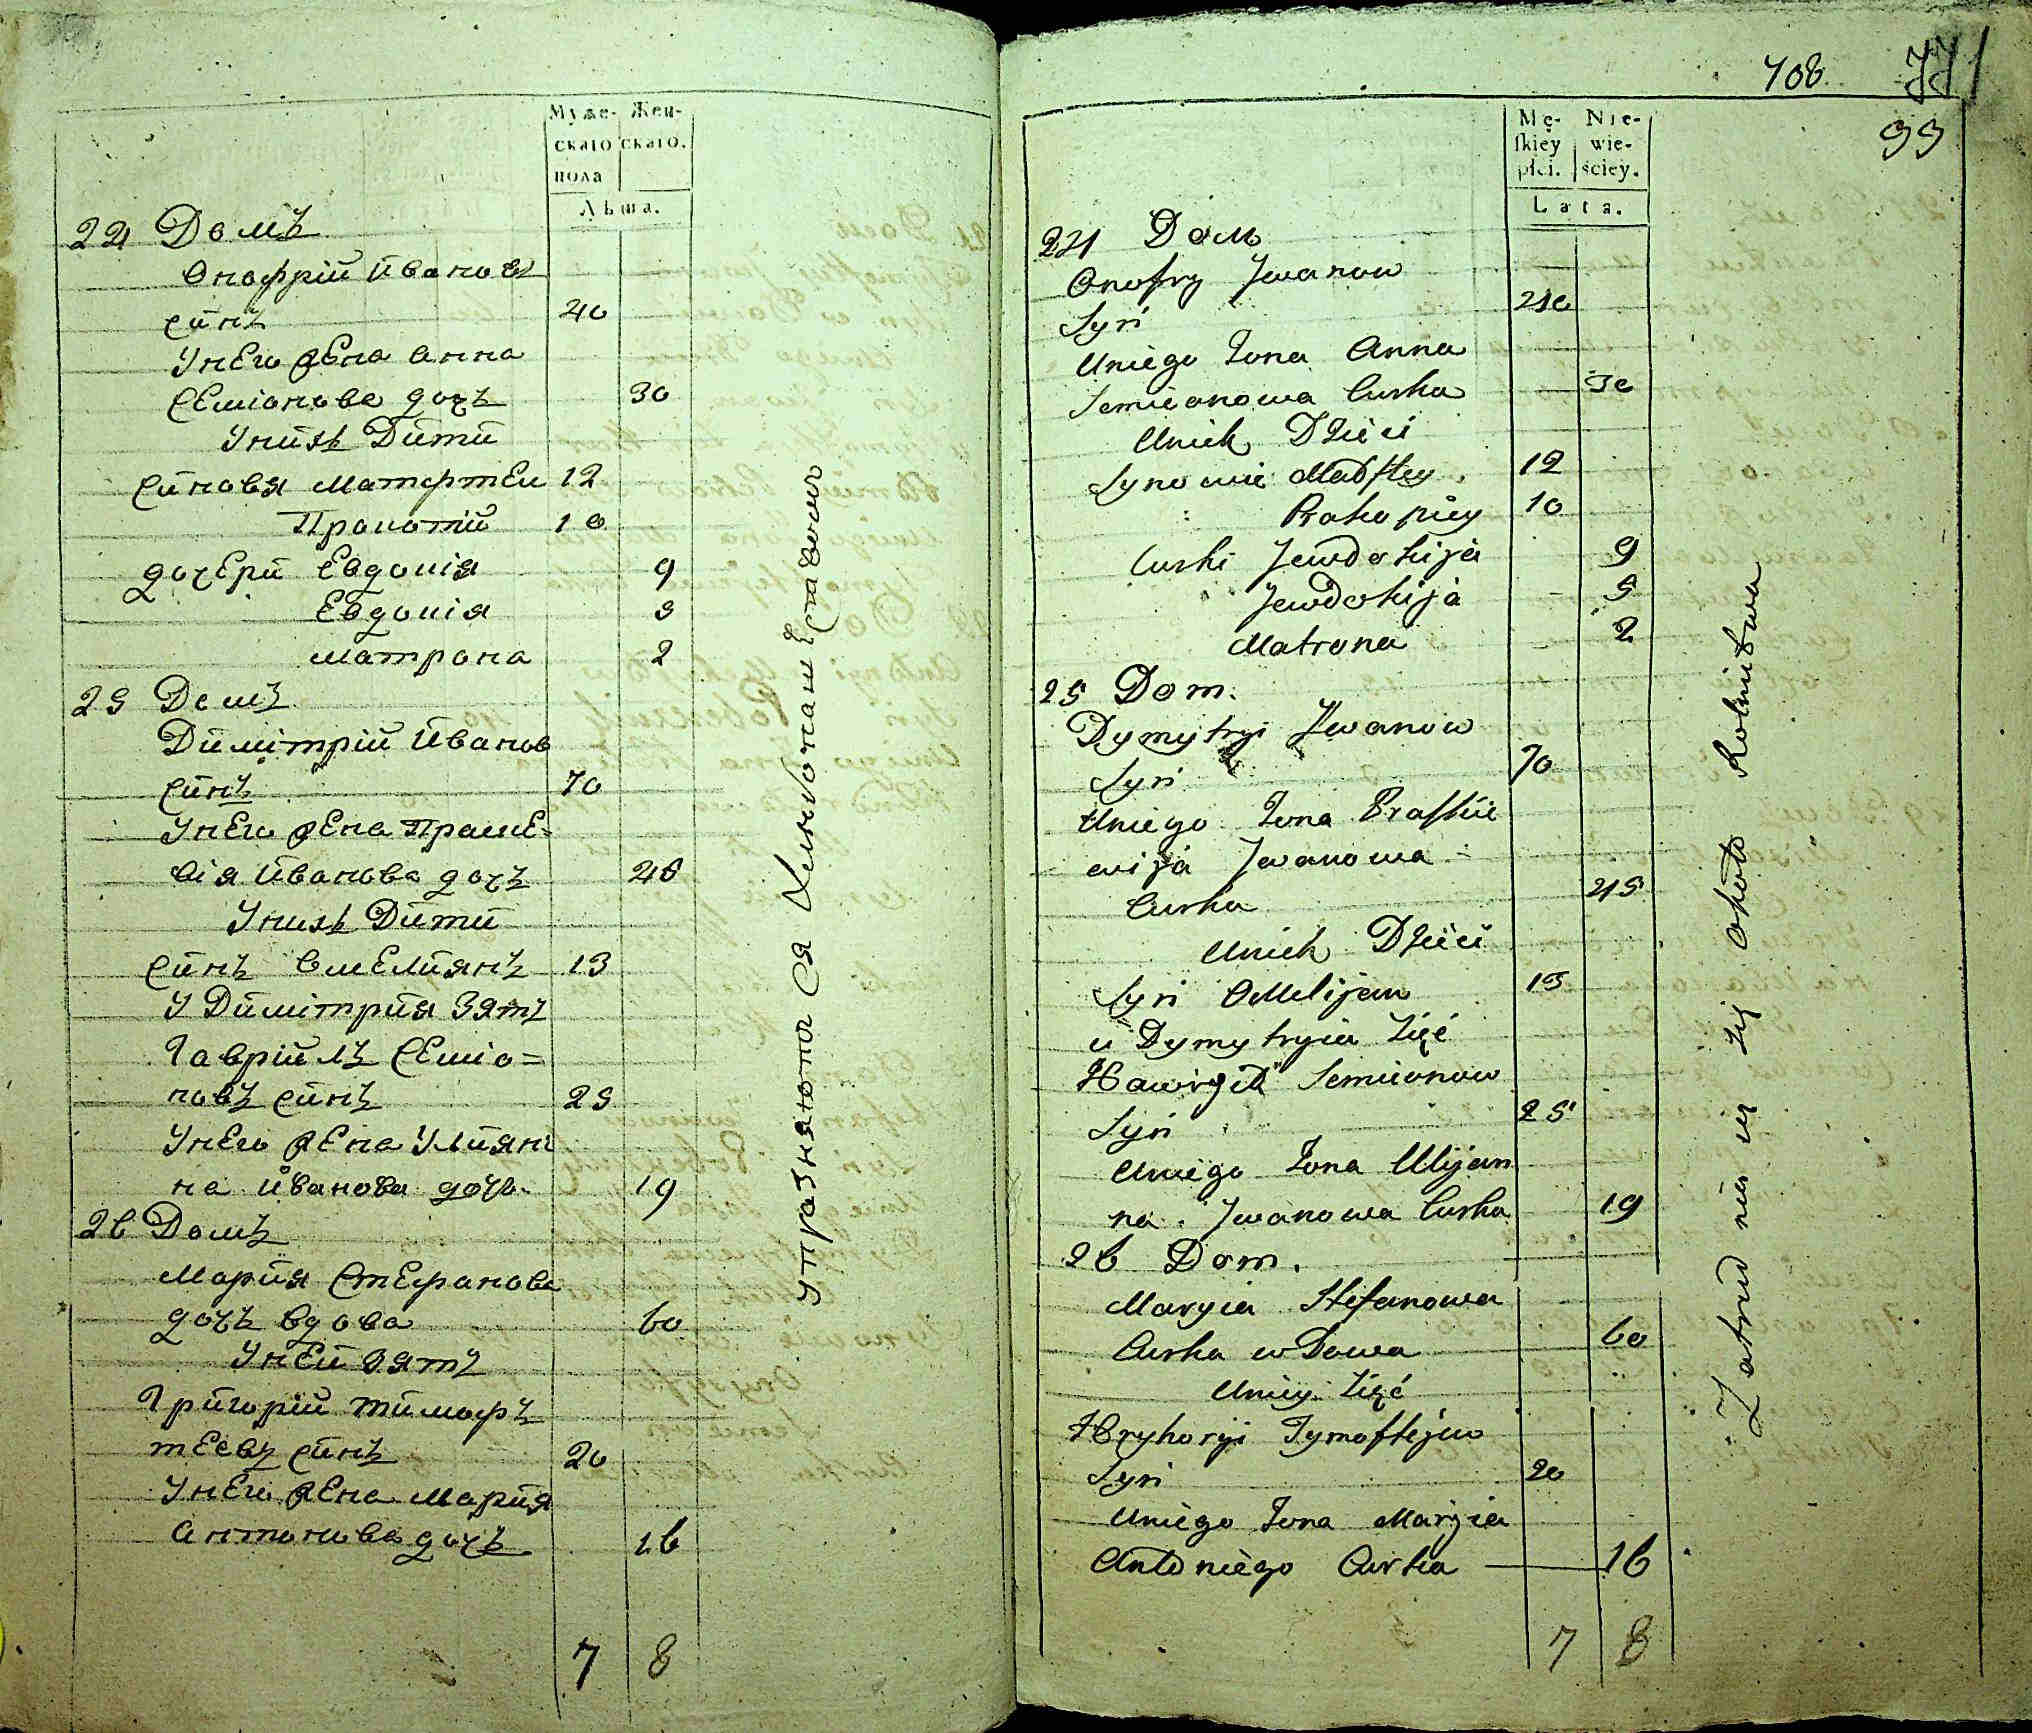 Муже- Жен-
скаго скаго.
пола
Лѣта.
24 Домъ
Онофрій Ивановъ
синъ 40
У него жена Анна
Семіонова дочъ 30
У нихъ Дити
синовя Матфтеи 12
Прокопій 10
дочери Евдокія 9
Евдокія 5
Матрона 2
25 Домъ
Димітрій Иванов
синъ 70
У него жена Праске-
вія Иванова дочъ 46
У нихъ Дити
синъ Омелиянъ 13
У Димітрия Зять
Гавріилъ Семіо=
новъ синъ 25
У него жена Улиян
на Иванова дочь 19
26 Домъ
Мария Стефанова
дочъ вдова 60
У неи зять
Григорій Тимофъ
теевъ синъ 20
У него жена Мария
Антонова дочъ 16
7 8
упражняются
708 771
99
Mę- Nie-
skiey wie-
płci. ściey.
Lata.
24 Dom
Onofry Jwanow
Syn 40
Uniego Żona Anna
Semionowa Curka 30
Unich Dzieci
Synowie Matftey 12
Prokopiey 10
Curki Jewdokija 9
Jewdokija 5
Matrona 2
25 Dom.
Dymytryi Jwanow
Syn 70
Uniego Żona Praskie
wija Jwanowa
Curka 45
Unich Dzieci
Syn OMelijan 13
u Dymytryia Zięć
Hawryił Semionow
Syn 25
Uniego Żona Ulijan
na Jwanowa Curka 19
26 Dom.
Maryia Stefanowa
Curka wDowa 60
Uniey Zięć
Hryhoryi Tymoftejew
Syn 20
Uniego Żona Maryia
Antoniego Curka 16
7 8
Zatrudnieni się około Rolnictwa